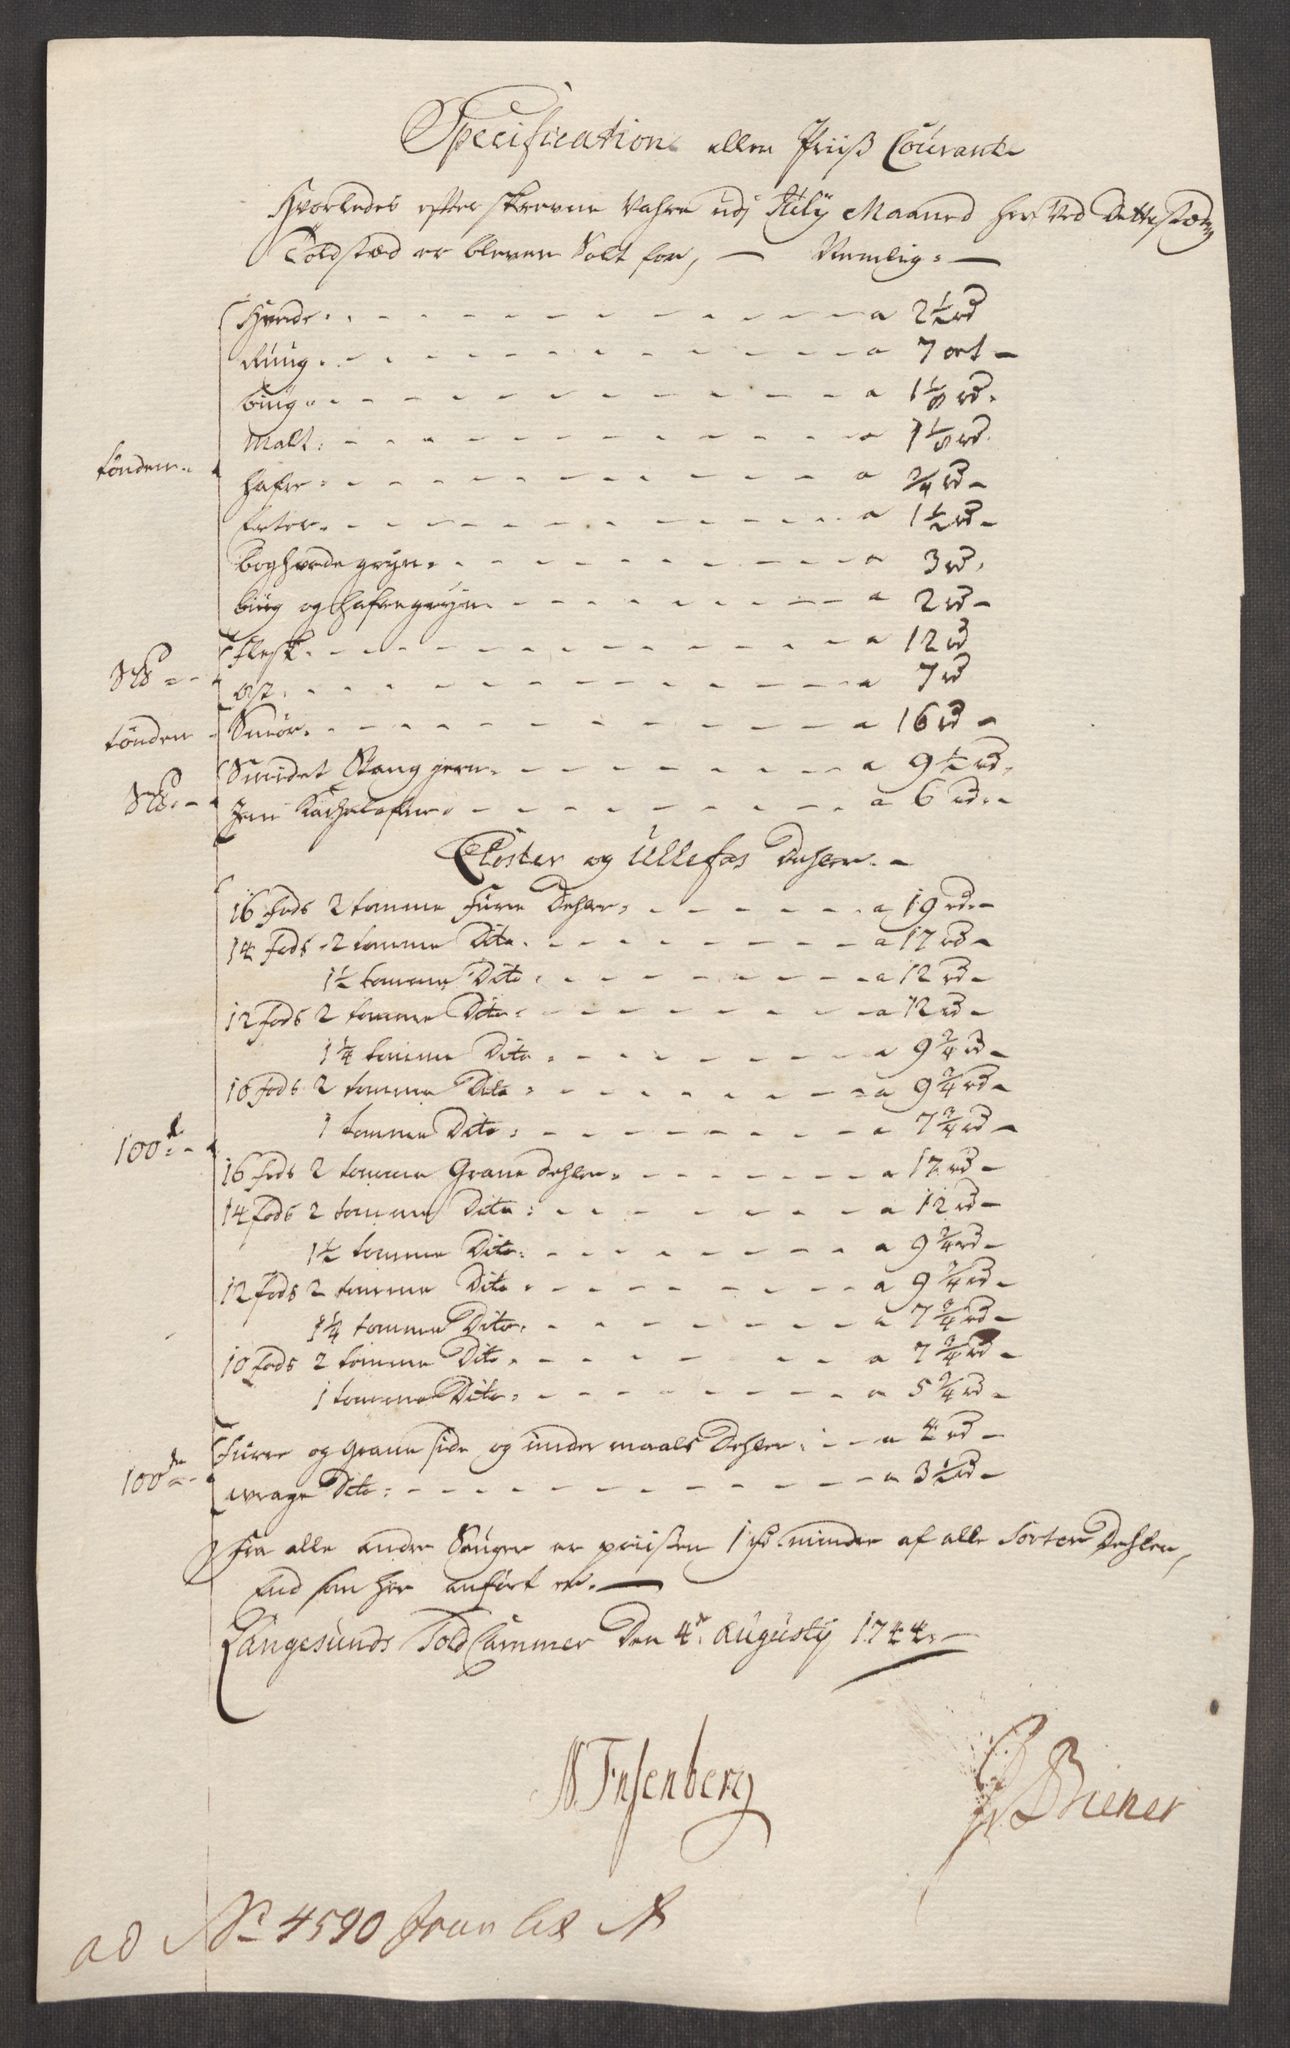 Specification eller Priiß Courante
Hvorledes efterskrevne Vahre udj Julÿ Maaned her Ved Dette
Toldstæd er bleven Solt for, — Nemlig. —
Hvede. a 2 1/2 rd
Rüug. a 7 ort
büug. a 1 1/8 rd.
Malt. a 1 1/8 rd.
tönden. hafre. a 3/4 rd
Erter. a 1 1/2 rd
boghvede gryn. a 3 rd.
büug og hafregryn. a 2 rd
Flesk. a 12 rd
S℔ ost. a 7 rd
tönden Smör. a 16 rd
Smidet Stang jern. a 9 1/2 rd.
S℔. Jern Kachelofne. a 6 rd.
Closter og Ullefos Dehler.
16 fods 2 tomme fürre Dehler. a 19 rd.
14 fods 2 tomme Dito. a 17 rd
1 1/2 tomme Dito. a 12 rd
12 fods 2 tomme Dito. a 12 rd
1 1/4 tomme Dito. a 9 3/4 rd
10 fods 2 tomme Dito. a 9 3/4 rd
1 tomme Dito. a 7 3/4 rd
100de.
16 fods 2 tomme Grane Dehler. a 17 rd
14 fods 2 tomme Dito. a 12 rd
1 1/2 tomme Dito. a 9 3/4 rd
12 fods 2 tomme Dito. a 9 3/4 rd
1 1/4 tomme Dito. a 7 3/4 rd
10 fods 2 tomme Dito. a 7 3/4 rd
1 tomme Dito. a 5 3/4 rd
Fürre og Grane side og under maals Dehler. a 4 rd
100de wrage Dito. a 3 1/2 rd
Fra alle andre Sauger er priißen 1 rd minder af alle Sorter Dehler,
End som her anfört er. —
Langesunds Told Cammer Den 4de Augustÿ 1744.
Briener
ad No 4590